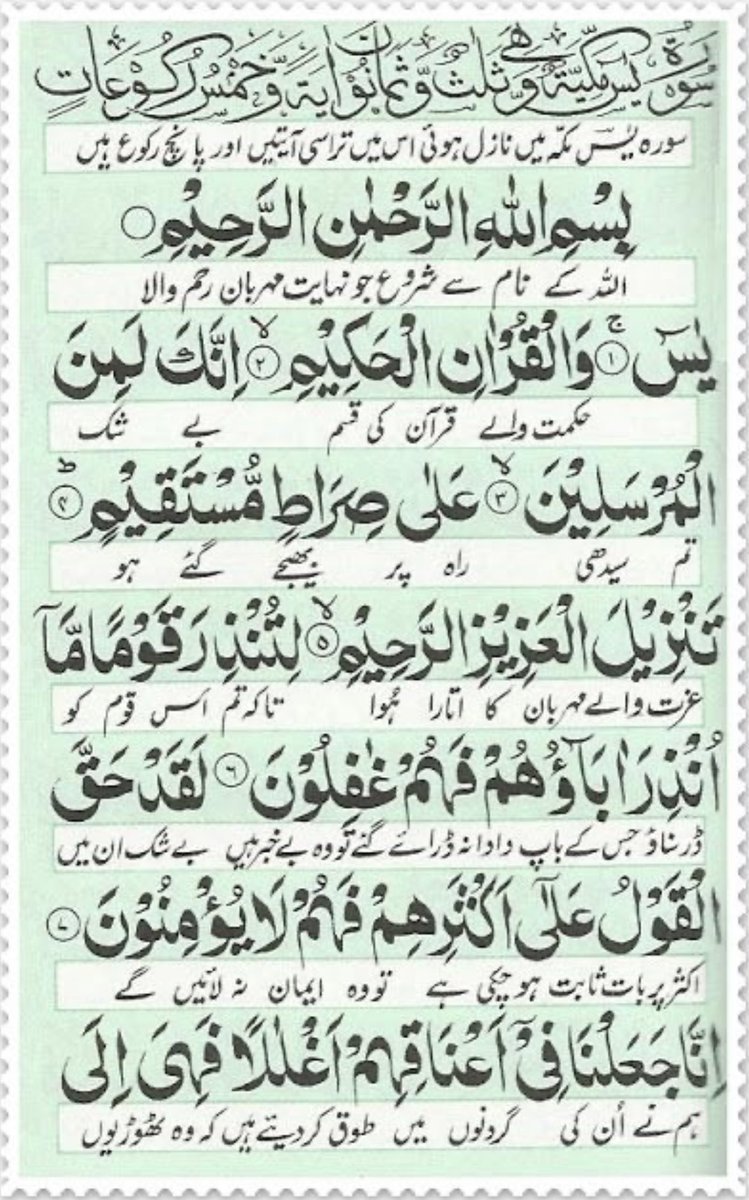 سُوْرَةُ يٰسٓ مَكِّيَّةٌ وَّهِيَ ثَلٰثٌ وَّثَمَانُوْنَ اٰيَةً وَّخَمْسُ رُكُوْعَاتٍ
سورہ یٰسٓ مکہ میں نازل ہوئی اس میں تراسی آیتیں اور پانچ رکوع ہیں
بِسْمِ اللّٰهِ الرَّحْمٰنِ الرَّحِيْمِ ○
اللہ کے نام سے شروع جو نہایت مہربان رحم والا
يٰسٓ ۚ﴿۱﴾ وَالْقُرْاٰنِ الْحَكِيْمِ ۙ﴿۲﴾ اِنَّكَ لَمِنَ
حکمت والے قرآن کی قسم بے شک
الْمُرْسَلِيْنَ ۙ﴿۳﴾ عَلٰى صِرَاطٍ مُّسْتَقِيْمٍ ؕ﴿۴﴾
تم سیدھی راہ پر بھیجے گئے ہو
تَنْزِيْلَ الْعَزِيْزِ الرَّحِيْمِ ۙ﴿۵﴾ لِتُنْذِرَ قَوْمًا مَّاۤ
عزت والے مہربان کا اتارا ہُوا تاکہ تم اس قوم کو
اُنْذِرَ اٰبَآؤُهُمْ فَهُمْ غٰفِلُوْنَ ﴿۶﴾ لَقَدْ حَقَّ
ڈر سناؤ جس کے باپ دادا نہ ڈرائے گئے تو وہ بے خبر ہیں بے شک ان میں
الْقَوْلُ عَلٰٓى اَكْثَرِهِمْ فَهُمْ لَا يُؤْمِنُوْنَ ﴿۷﴾
اکثر پر بات ثابت ہو چکی ہے تو وہ ایمان نہ لائیں گے
اِنَّا جَعَلْنَا فِيْۤ اَعْنَاقِهِمْ اَغْلٰلًا فَهِيَ اِلَى
ہم نے اُن کی گردونوں میں طوق کر دیئے ہیں کہ وہ ٹھوڑیوں